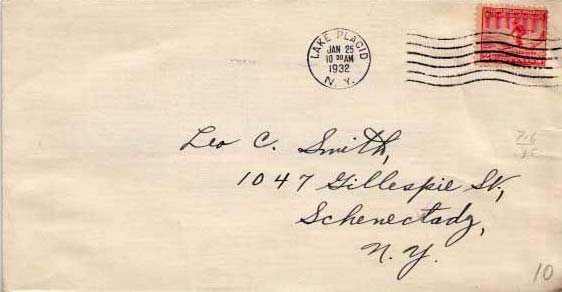 LAKE PLACID
JAN 25
10 30 AM
1932
N. Y.
Leo C. Smith,
1047 Gillespie St,
Schenectady,
N. Y.
10